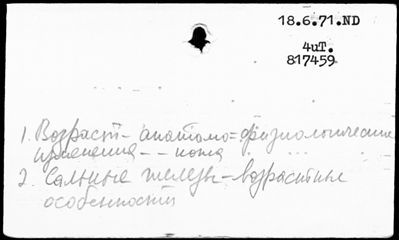 18.6.71.ND
4иТ.
817459
1. Возраст – анатомо=физиологические
изменения -- кожа
2. Сальные железы – возрастные
особенности